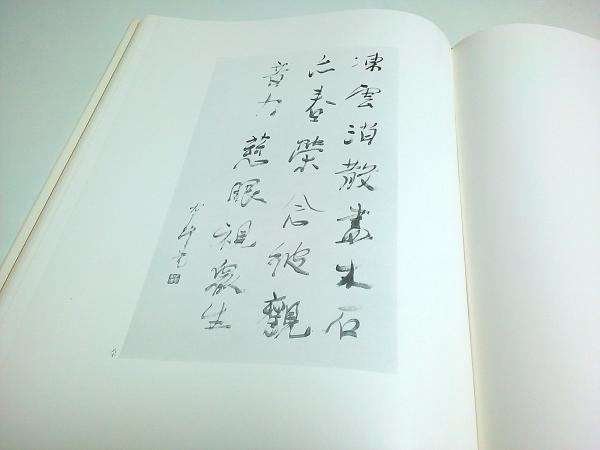 凍雲消散盡木石
亦春榮念彼觀
音力慈眼視衆生